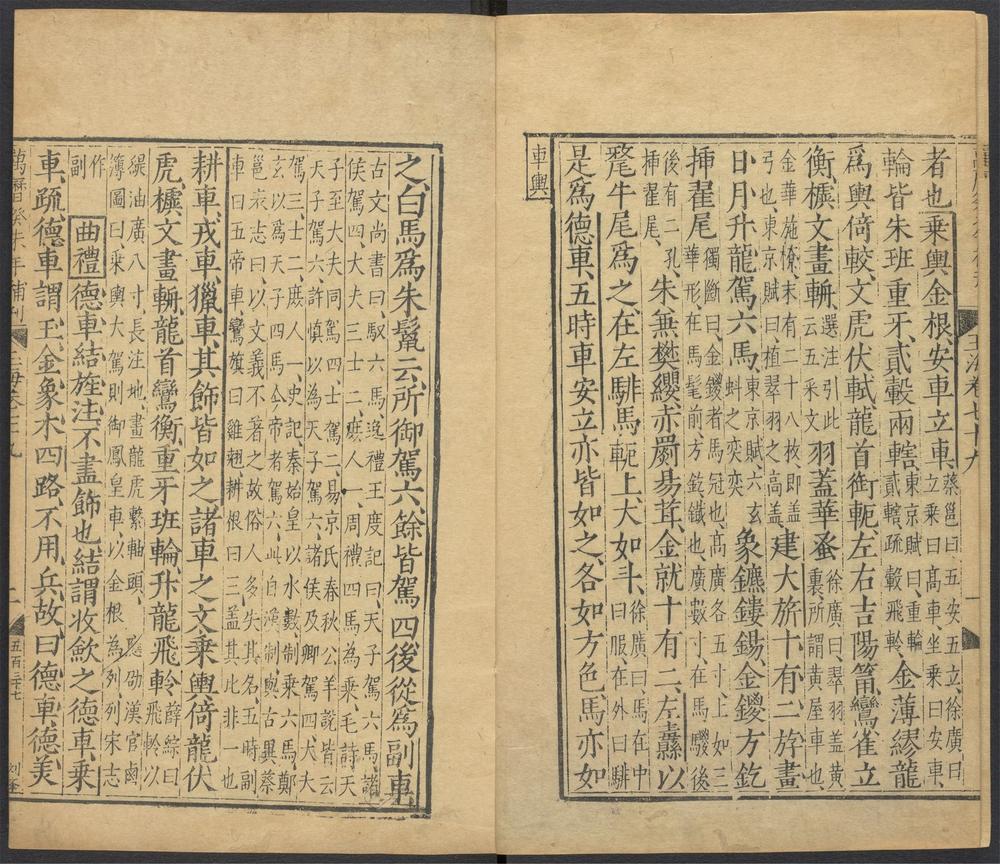 玉海卷七十九 一
者也乘輿金根安車立車蔡邕曰五安五立徐廣曰立乘曰高車坐乘曰安車
輪皆朱班重牙貳轂兩轄東京賦曰重輪貳轄疏轂飛軨金薄繆龍
爲輿倚較文虎伏軾龍首銜軛左右吉陽筩鸞雀立
衡㯫文畫輈選注引此云五采文羽蓋華蚤徐廣曰翠羽蓋黃裏所謂黃屋車也
金華施橑末有二十八枚即蓋弓也東京賦曰植翠羽之高蓋建大旂十有二斿畫
日月升龍駕六馬東京賦六玄虯之奕奕象鑣鏤鍚金鑁方釳
挿翟尾獨斷曰金鑁者馬冠也高廣各五寸上如三華形在馬髦前方釳鐵也廣數寸在馬騣後
後有二孔挿翟尾朱兼樊纓赤罽昜茸金就十有二左纛以
氂牛尾爲之在左騑馬軛上大如斗徐廣曰馬在中曰服在外曰騑
是爲德車五時車安立亦皆如之各如方色馬亦如
車輿
之白馬爲朱鬣云所御駕六餘皆駕四後從爲副車
古文尚書曰馭六馬逸禮王度記曰天子駕六馬諸
侯駕四大夫三士二庶人一周禮四馬為乘毛詩天
子至大夫同駕四士駕二易京氏春秋公羊說皆云
天子駕六許慎以為天子駕六諸侯及卿駕四大夫
駕三士二庶人一史記秦始皇以水數制乘六馬鄭
玄以為天子四馬今帝者駕六此自漢制與古異蔡
邕表志曰以文義不著之故俗人多失其名五時副
車曰五帝車鸞旗曰雞翹耕根曰三蓋其此非一也
耕車戎車獵車其飾皆如之諸車之文乘輿倚龍伏
虎㯫文畫輈龍首鸞衡重牙班輪升龍飛軨薛綜曰飛軨以
緹油廣八寸長注地畫龍虎繫軸頭 漢官鹵
簿圖曰乘輿大駕則御鳳皇車以金根為列宋志
作副曲禮德車結旌注不盡飾也結謂收斂之德車乘
車疏德車謂玉金象木四路不用兵故曰德車德美
萬曆癸未年補刊 玉海卷七十九 二 五百三十七